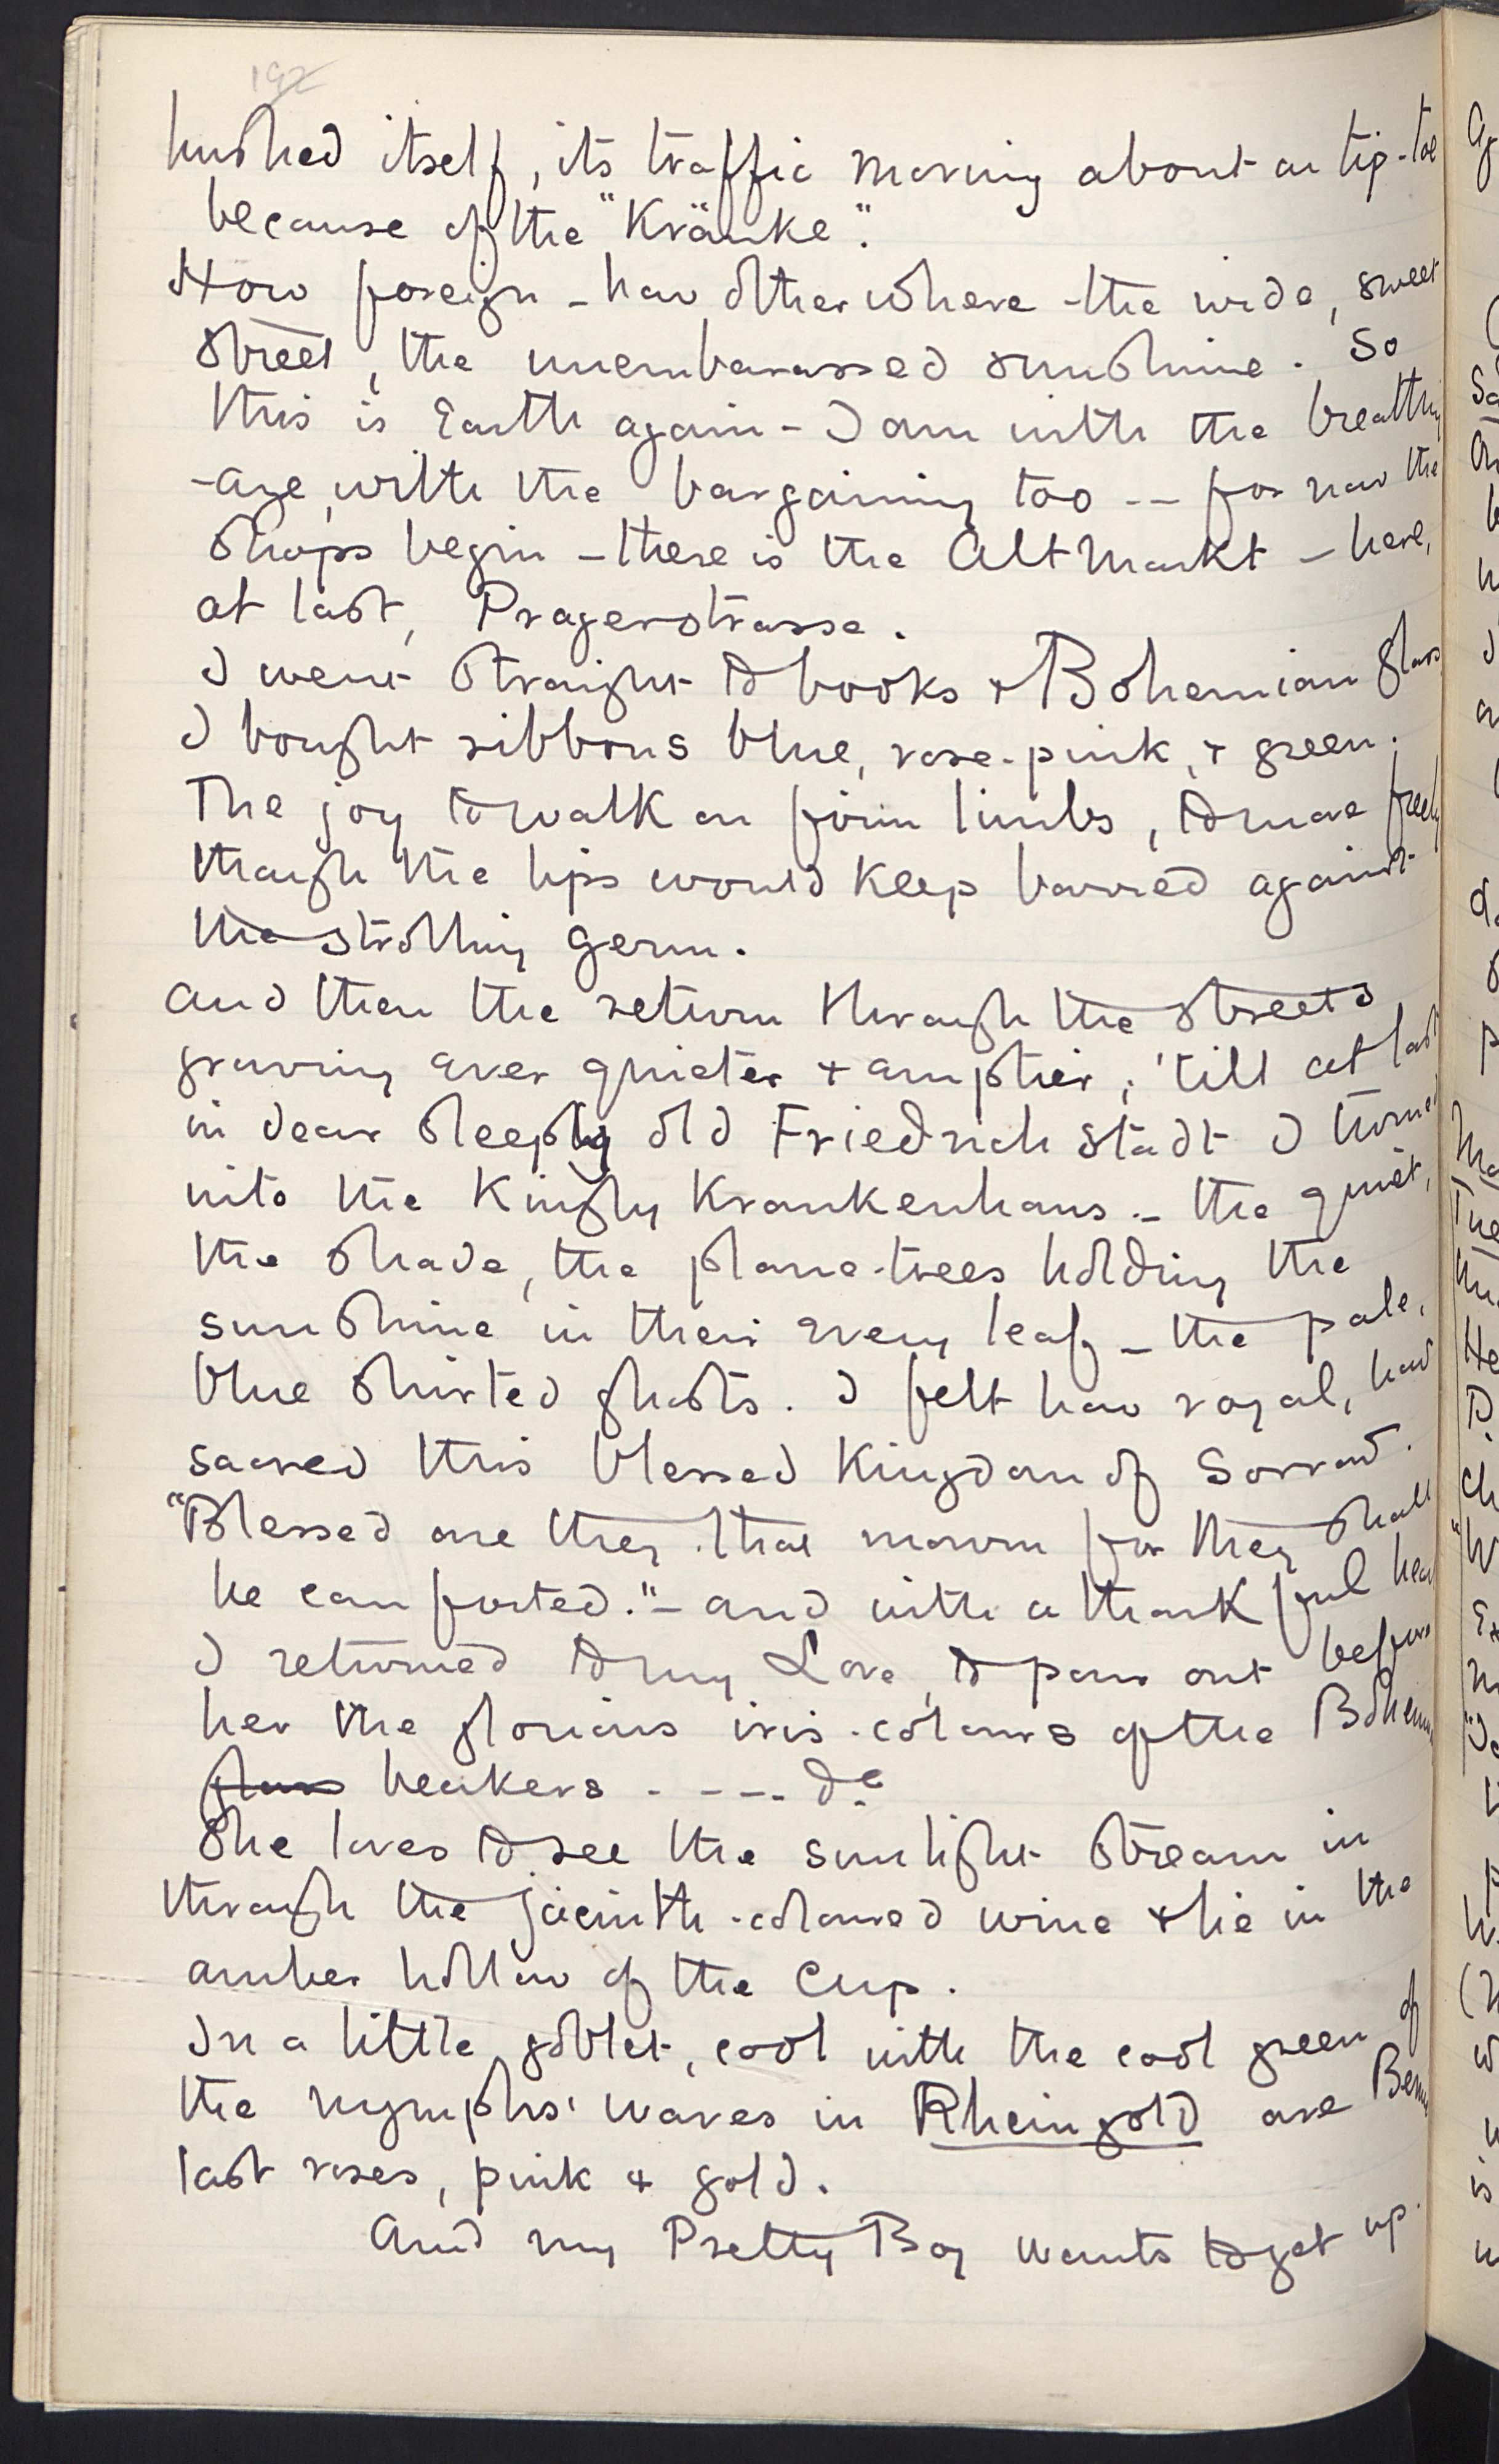 192
hushed itself, its traffic moving about on tip-toe
because of the "Kränke".
How foreign - how otherwhere - the wide, sweet
street, the unembarassed sunshine. So
this is Earth again - I am with the breathing
- aye, with the bargaining too -- for now the
shops begin - there is the Alt Markt - here,
at last, Pragerstrasse.
I went straight to books & Bohemian glass
I bought ribbons blue, rose-pink, & green.
The joy to walk on firm limbs, to move freely
though the lips would keep barred against
the strolling germ.
And then the return through the streets
growing ever quieter & emptier, 'till at last
in dear sleepy old Friedrich stadt I turned
into the Kingly Krankenhaus - the quiet,
the shade, the plane-trees holding the
sunshine in their every leaf - the pale,
blue shirted ghosts. I felt how royal, how
sacred this blessed Kingdom of Sorrow.
"Blessed are they that mourn for they shall
be comforted." - and with a thankful heart
I returned to my Love, to pour out before
her the glorious iris-colours of the Bohemian
glass beakers - - - -
She loves to see the sunlight stream in
through the jacinth-coloured wine & lie in the
amber hollow of the cup.
In a little goblet, cool with the cool green of
the nymphs' waves in Rheingold are
last roses, pink & gold.
And my Pretty Boy wants to get up.